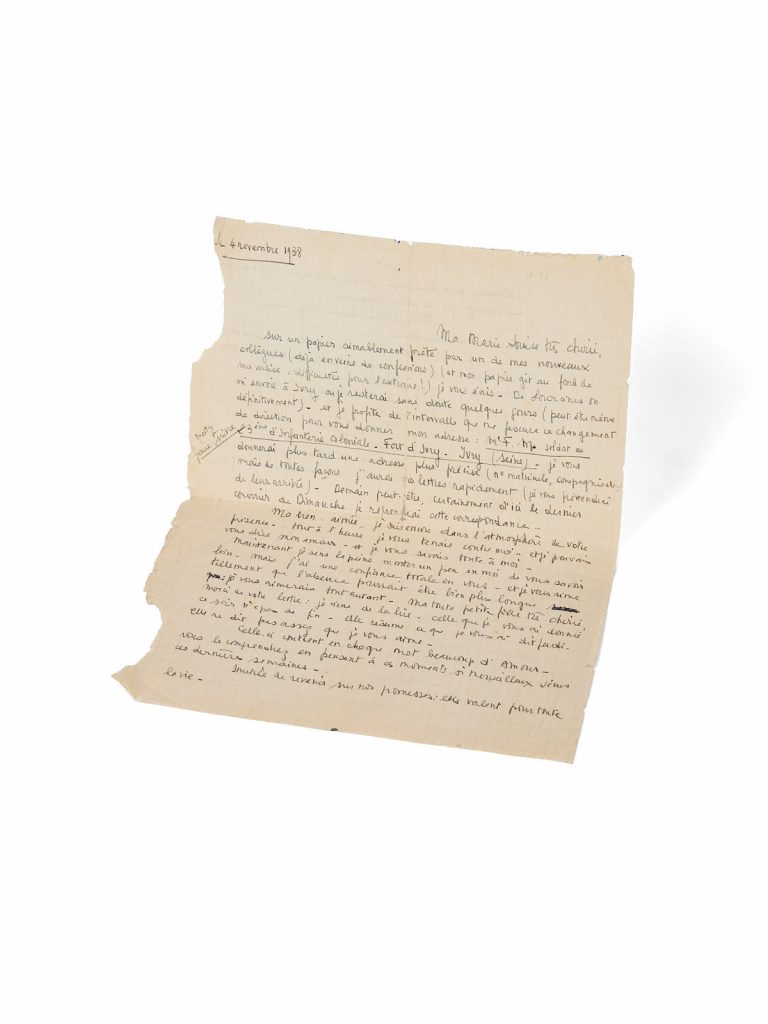 4 novembre 1938
12-35
Ma Marie Louise très chérie,
Sur un papier aimablement prêté par un de mes nouveaux
collègues (déjà en veine de confessions) (et mon papier gît au fond de
ma valise : difficultés pour l'extraire !) je vous écris - De Lourcines on
m'envoie à Ivry où je resterai sans doute quelques jours (peut être même
définitivement) - et je profite de l'intervalle que me procure ce changement
de direction pour vous donner mon adresse : Mr F. M. soldat au
23ème d'Infanterie Coloniale - Fort d'Ivry - Ivry (Seine) - je vous
donnerai plus tard une adresse plus précise (n° matricule, compagnie etc)
mais de toutes façons j'aurai vos lettres rapidement (je vous préviendrai
de leur arrivée) - Demain peut être, certainement d'ici le dernier
courrier de Dimanche je reprendrai cette correspondance ..
Ma bien aimée - je suis encore dans l'atmosphère de votre
présence - tout à l'heure je vous tenais contre moi - et je pouvais
vous dire mon amour - et je vous savais toute à moi -
maintenant je sens la peine monter un peu en moi de vous savoir
loin - mais j'ai une confiance totale en vous - et je vous aime
tellement que l'absence pourrait être bien plus longue
je vous aimerais tout autant - Ma toute petite fille très chérie,
merci de votre lettre : je viens de la lire - celle que je vous ai donnée
ce soir n'a pas de fin - elle résume ce que je vous ai dit jeudi -
elle ne dit pas assez que je vous aime -
Celle-ci contient en chaque mot beaucoup d'Amour -
vous le comprendrez en pensant à ces moments si merveilleux vécus
ces dernières semaines -
Inutile de revenir sur nos promesses : elles valent pour toute
la vie -